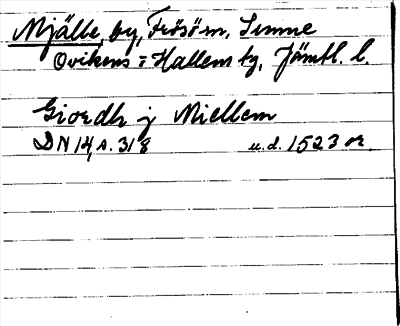 Mjälle, by, Frösö sn, Sunne
Ovikens o Hallens tg, Jämtl. l.
Giordh j Miellem
DN 14, s. 318 u.d. 1523 or.